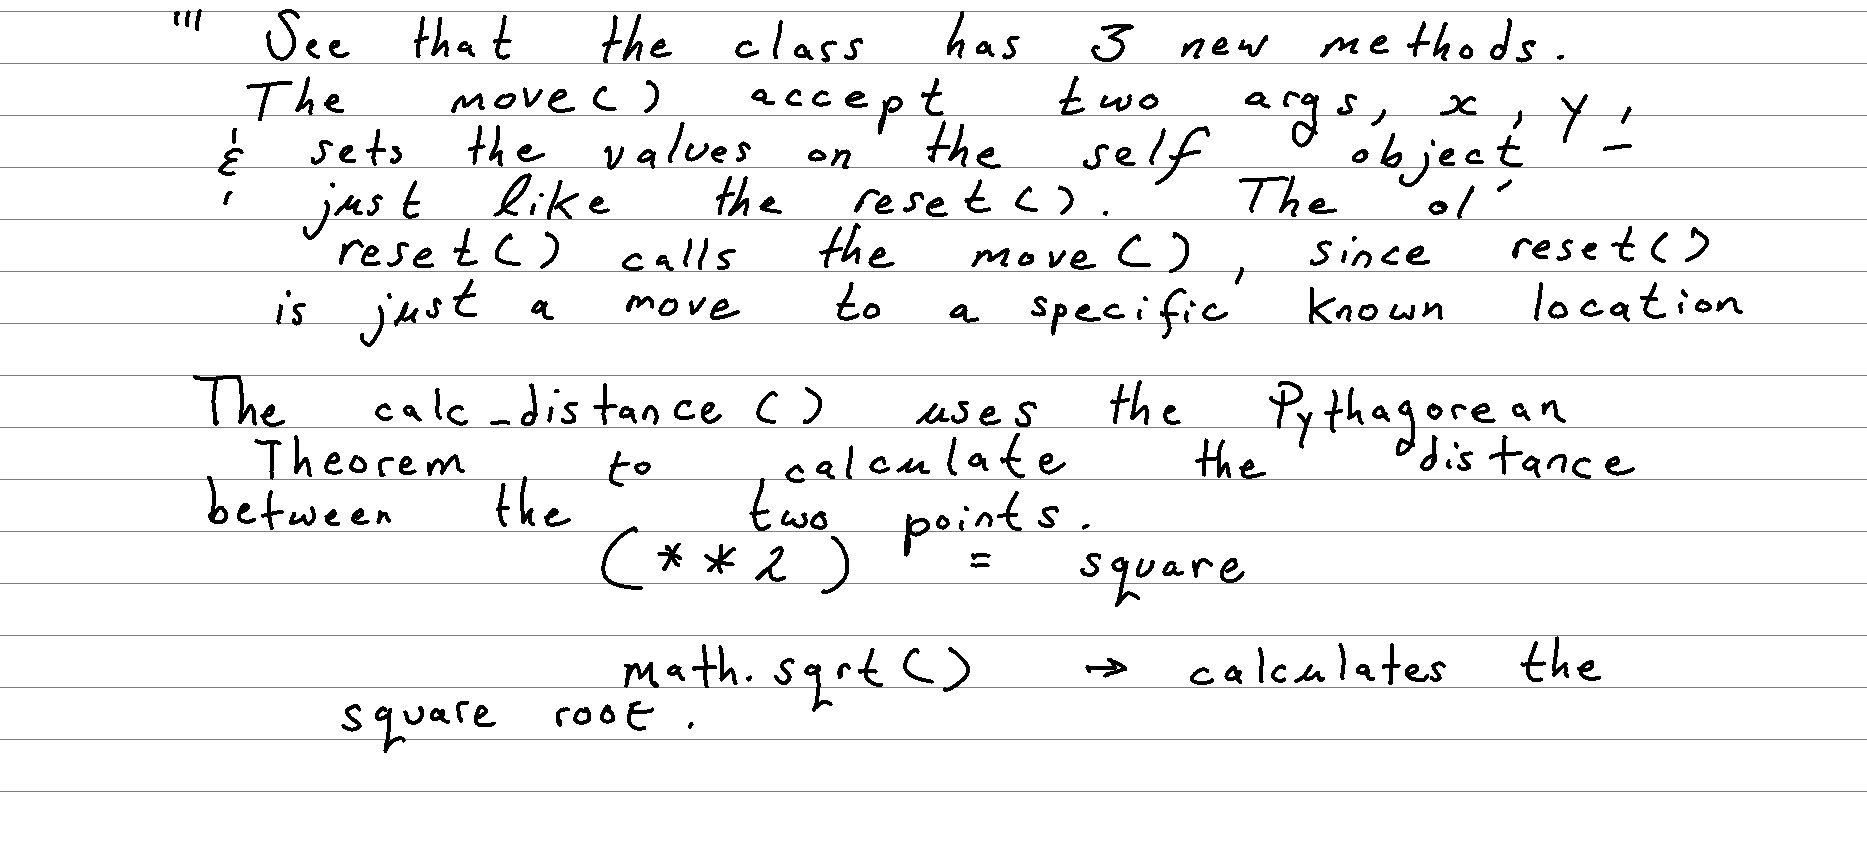 ''' See that the class has 3 new methods.
The move() accept two args, x, y;
& sets the values on the self object –
just like the reset(). The ol'
reset() calls the move(), since reset()
is just a move to a specific known location
The calc_distance() uses the Pythagorean
Theorem to calculate the distance
between the two points.
(**2) = square
math.sqrt() → calculates the
square root.